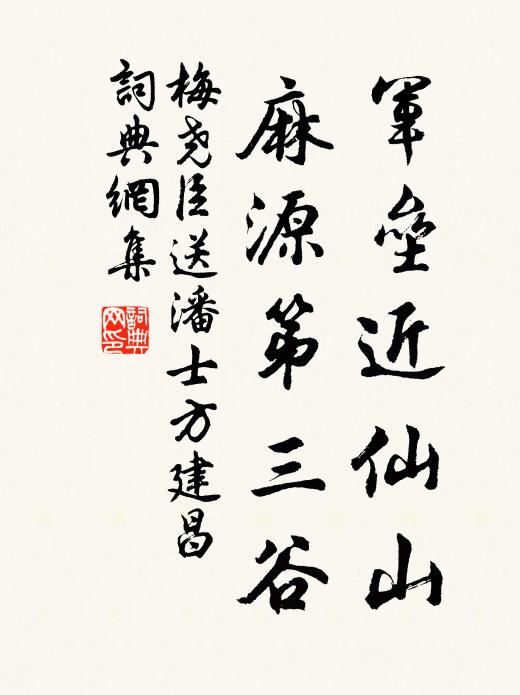 軍壘近仙山
麻源第三谷
梅尧臣送潘士方建昌
詞典網集
詞典网印